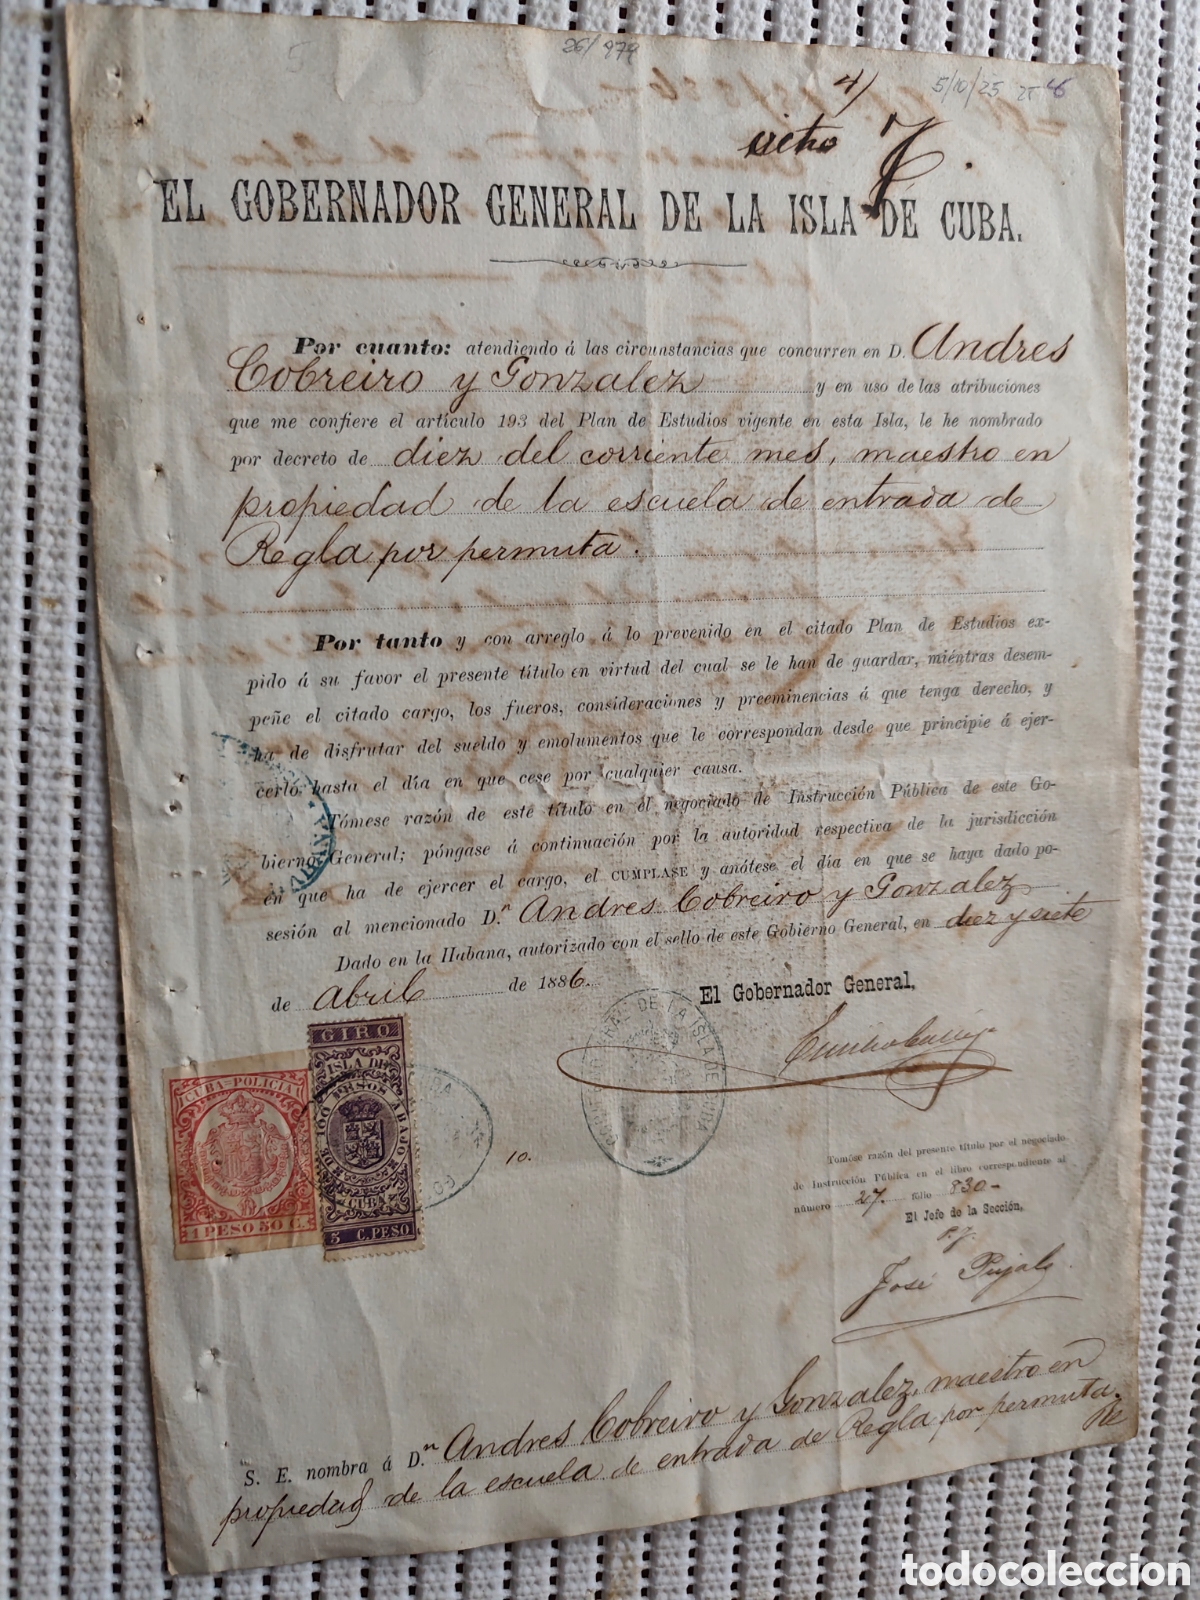 26/979
4)
5/10/25
siete 7.
EL GOBERNADOR GENERAL DE LA ISLA DE CUBA.
Por cuanto: atendiendo á las circunstancias que concurren en D. Andres
Cobreiro y Gonzalez y en uso de las atribuciones
que me confiere el artículo 193 del Plan de Estudios vigente en esta Isla, le he nombrado
por decreto de diez del corriente mes, maestro en
propiedad de la escuela de entrada de
Regla por permuta.
Por tanto y con arreglo á lo prevenido en el citado Plan de Estudios ex-
pido á su favor el presente título en virtud del cual se le han de guardar, miéntras desem-
peñe el citado cargo, los fueros, consideraciones y preeminencias á que tenga derecho, y
ha de disfrutar del sueldo y emolumentos que le correspondan desde que principie á ejer-
cerlo hasta el día en que cese por cualquier causa.
Tómese razón de este título en el negociado de Instrucción Pública de este Go-
bierno General; póngase á continuación por la autoridad respectiva de la jurisdicción
en que ha de ejercer el cargo, el CÚMPLASE y anótese el día en que se haya dado po-
sesión al mencionado D.n Andres Cobreiro y Gonzalez
Dado en la Habana, autorizado con el sello de este Gobierno General, en diez y siete
de Abril de 1886.
El Gobernador General,
GOBIERNO GENERAL DE LA ISLA DE CUBA
CUBA=POLICIA
1 PESO 50 C.
GIRO
ISLA DE CUBA
DE 100 PESOS ABAJO
5 C. PESO
10.
Tomóse razón del presente título por el negociado
de Instrucción Pública en el libro correspondiente al
número 27. folio 830-
El Jefe de la Sección,
José Pujals
S. E. nombra á D.n Andres Cobreiro y Gonzalez, maestro en
propiedad de la escuela de entrada de Regla por permuta.
todocoleccion